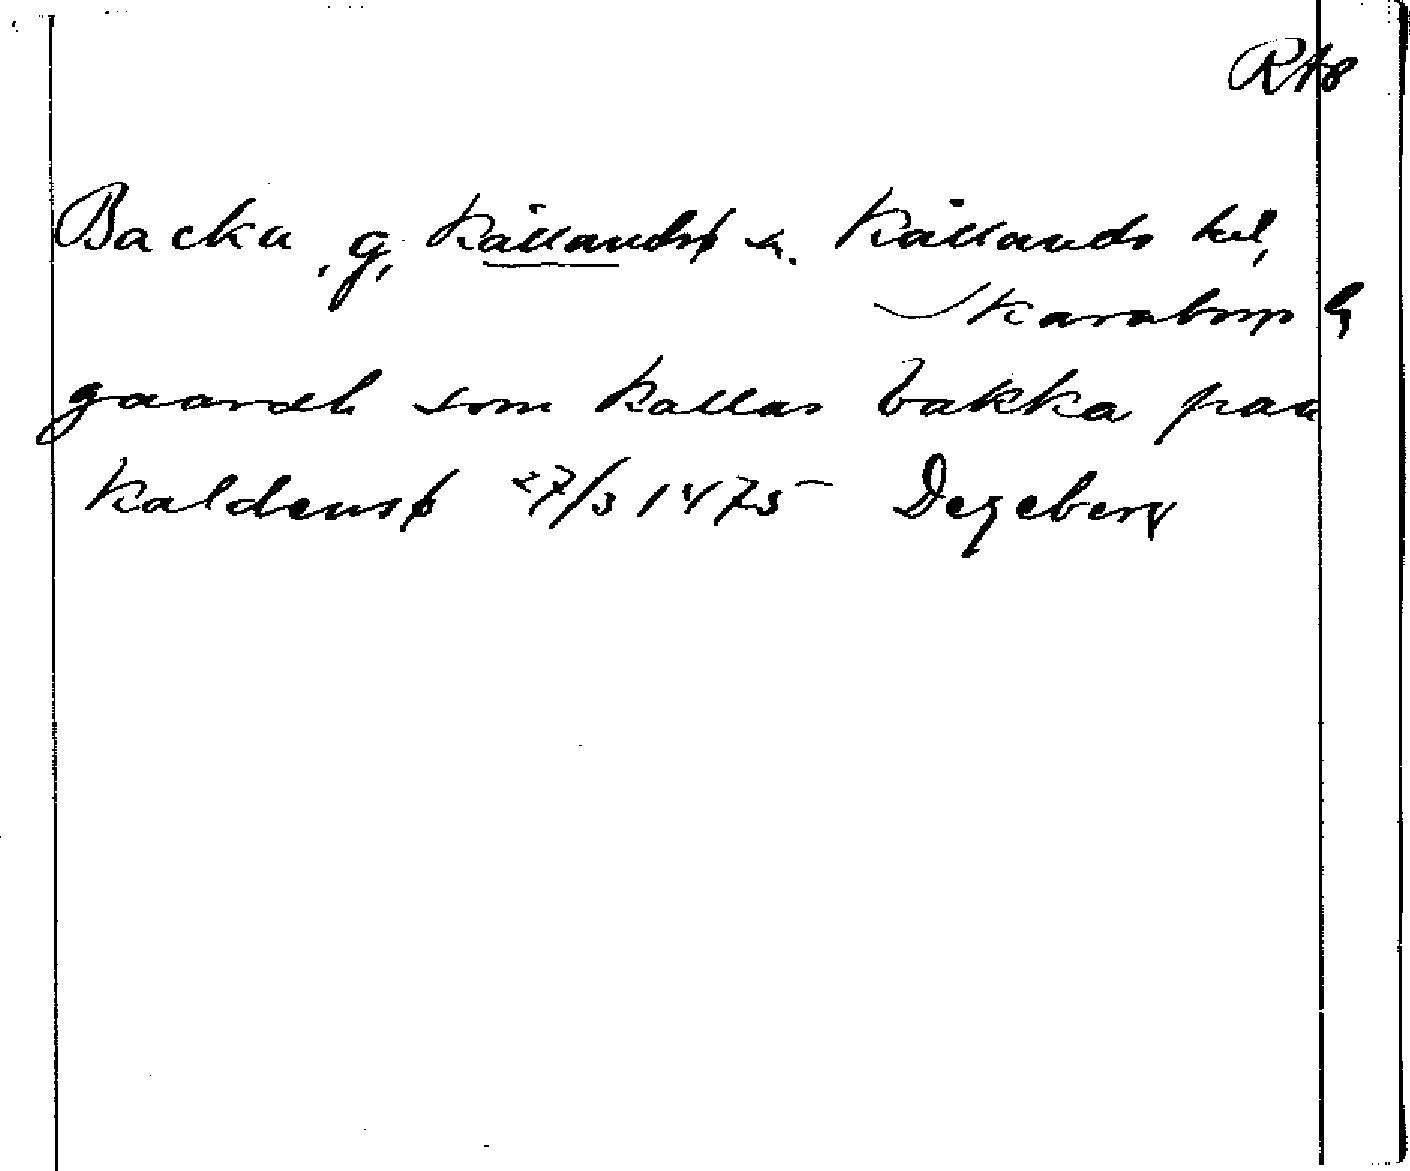 RAp
Backa, g, Kållandsö sn. Kållands hd,
Skaraborgs l.
gaardh som kallas bakka paa
kaldensø 27/3 1475 Degeberg